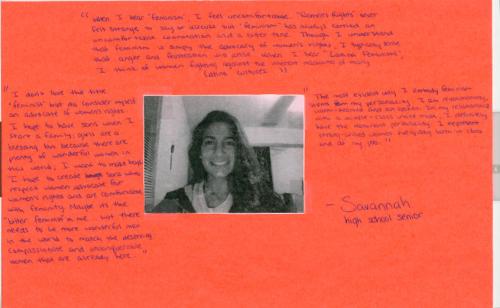 "When I hear 'feminism', I feel uncomfortable. 'Women's Rights' never
felt strange to say or discuss but 'feminism' has always carried an
uncomfortable connotation and a bitter tone. Though I understand
that feminism is simply the advocacy of women's rights, I typically sense
that anger and frustration are when I hear 'Latina Feminists',
I think of women fighting against the machismo of many
Latino cultures."
"I don't love the title
'feminist' but do consider myself
an advocate of women's rights.
I hope to have sons when I
start a family; girls are a
blessing but because there are
plenty of wonderful women in
this world, I want to make boys.
I hope to create sons who
respect women, advocate for
women's rights and are comfortable
with femininity. Maybe it's the
'bitter feminist' in me but there
needs to be more wonderful men
in the world to match the deserving,
compassionate and
women that are already here."
"The most evident way I embody feminism
stems from my personality. I am
and In my relationship
with a white male, I definitely
have the dominant personality. I represent
strong-willed women everyday both in class
and at my job."
- Savannah
high school senior